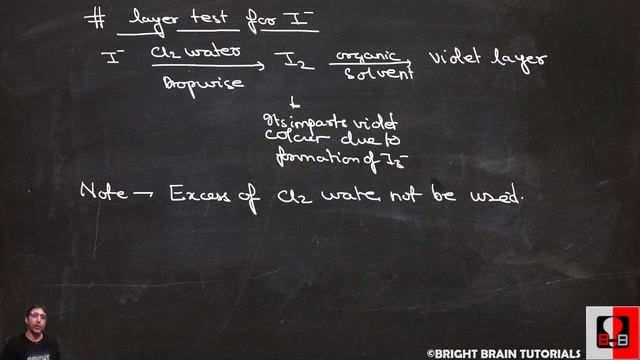 # layer test for I⁻
I⁻ Cl2 water Dropwise → I2 organic Solvent → violet layer
↓
Its imparts violet
colour due to
formation of I3⁻
Note → Excess of Cl2 water not be used.
B B
©BRIGHT BRAIN TUTORIALS